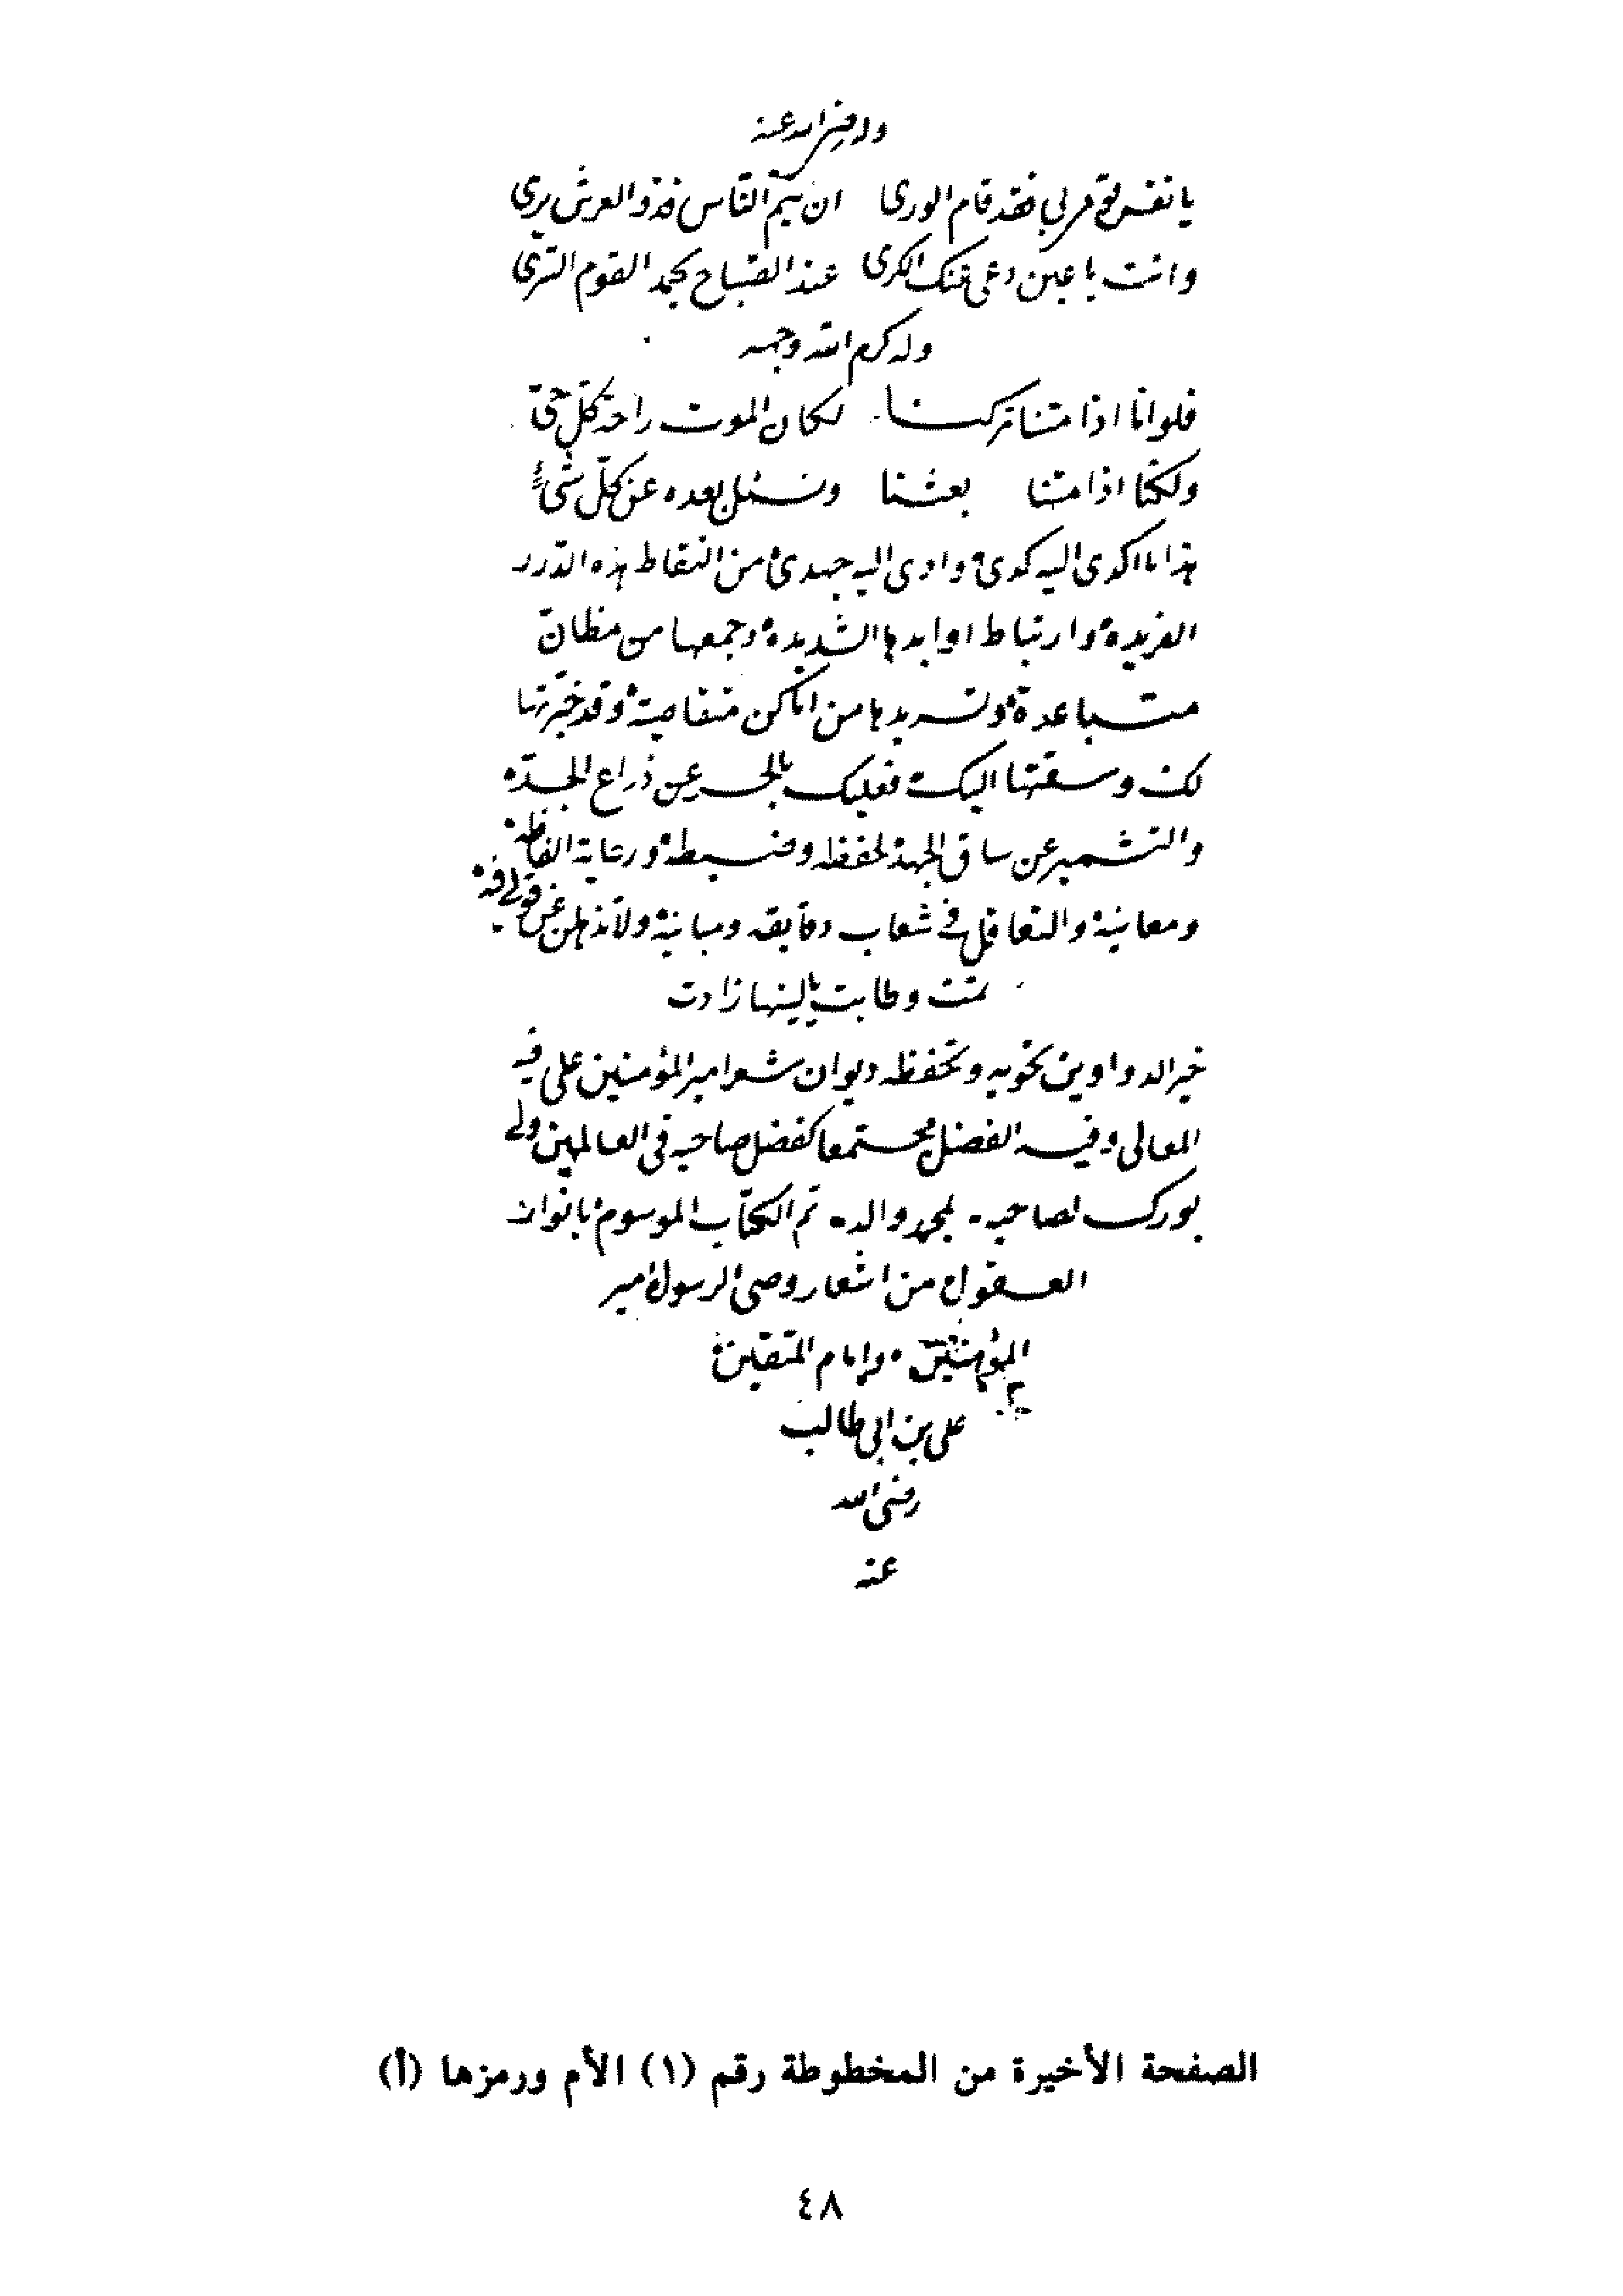 وله رضى الله عنه
يا نفس قومى فقد قام الورى ان ينم الناس فذو العرش يرى
وانت يا عين دعى عنك الكرى عند الصباح يحمد القوم السرى
وله كرم الله وجهه
فلو انا اذا متنا تركنا لكان الموت راحة كل حى
ولكنا اذا متنا بعثنا ونسئل بعده عن كل شئ
هذا ما اكدى اليه كدى وادى اليه جهدى من التقاط هذه الدرر
الفريدة وارتباط اوابدها الشديدة وجمعها من مظان
متباعدة وتسريدها من اماكن متقاصية وقد خبرتها
لك وسقتها اليك فعليك بالحسر عن ذراع الجد
والتشمير عن ساق الجهد لحفظه وضبطه ورعاية الفاظه
ومعانيه والتغافل فى شعاب دقايقه ومبانيه ولا تذهلن عن قولى فيه
تمت وطابت زادت
خير الدواوين تحويه وتحفظه ديوان شعر امير المؤمنين على فيه
المعالى وفيه الفضل مجتمعا كفضل صاحبه فى العالمين ولى
بورك لصاحبه بمحمد واله تم الكتاب الموسوم بانوار
العقول من اشعار وصى الرسول امير
المؤمنين وامام المتقين
على بن ابى طالب
رضى الله
عنه
الصفحة الأخيرة من المخطوطة رقم (١) الأم ورمزها (أ)
٤٨